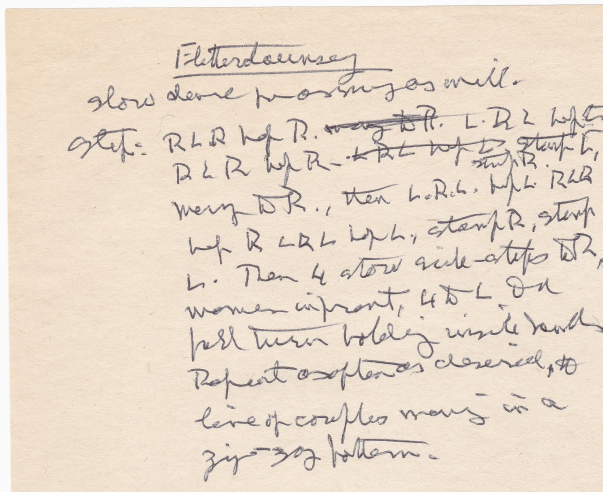 slow dance
Step: R L R hop R. L. R L hop L
R L R hop R stamp L,
stamp R.
moving to R., then L.R.L. hop L. RLR
hop R LRL hop L, stamp R, stamp
L. Then 4 slow side-steps to R,
women in front, 4 to L. Do a
full turn holding inside hands
Repeat as often as desired, to
line of couples moving in a
zig-zag pattern.